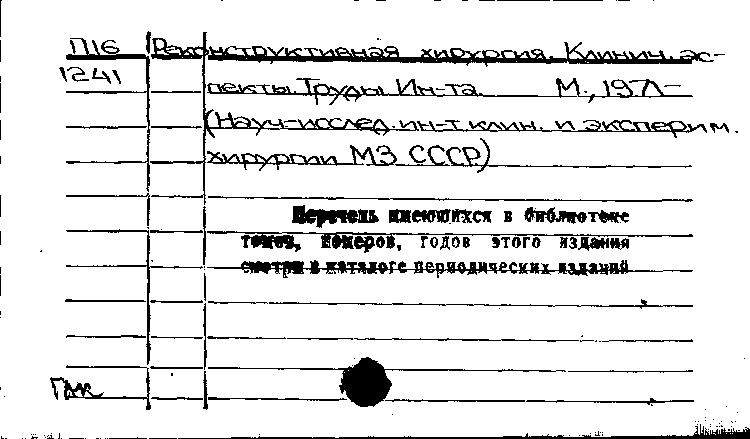 П16 Реконструктивная хирургия. Клинич. ас-
1241 пекты. Труды Ин-та. М., 1971-
(Науч-исслед. ин-т клин. и эксперим.
хирургии МЗ СССР)
Перечень имеющихся в библиотеке
томов, номеров, годов этого издания
смотри в каталоге периодических изданий